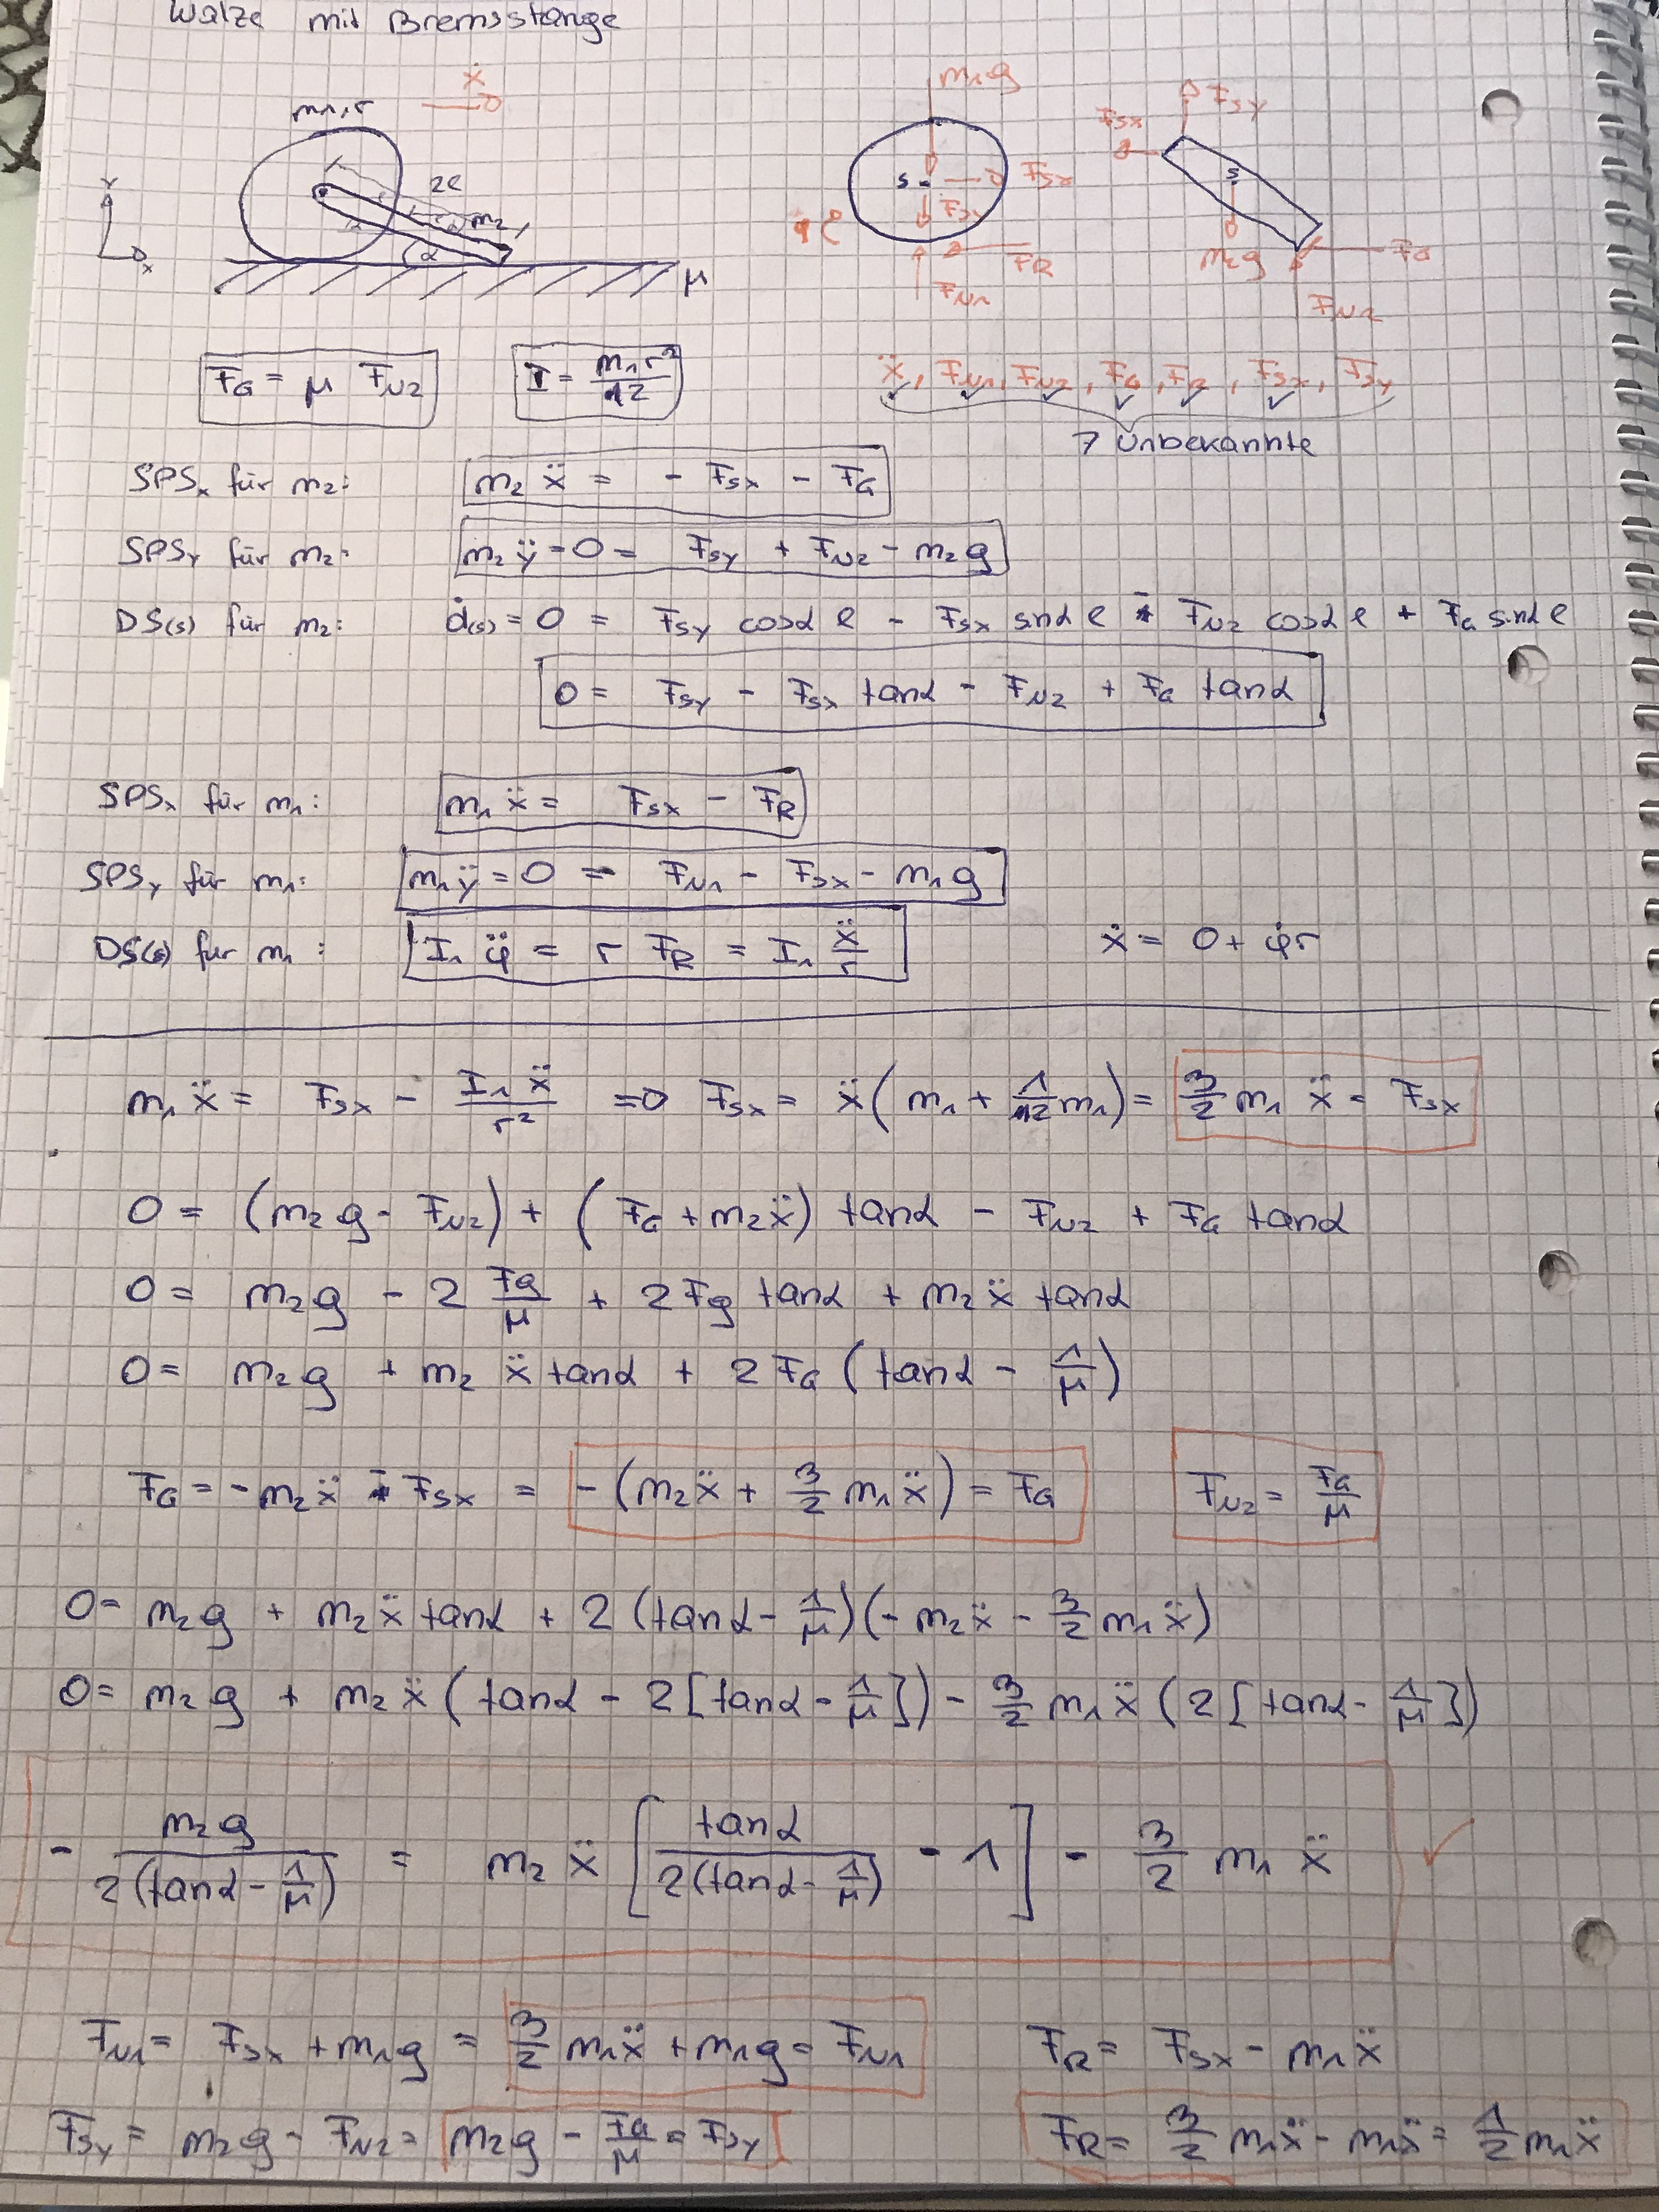 Walze mit Bremsstange
ẋ
m₁, r
2l
m₂
α
y
x
μ
m₁g
S
F_Sx
F_Sy
φ
F_R
F_N1
F_Sy
F_Sx
S
m₂g
F_G
F_N2
F_G = μ F_N2
I = m₁r²/2
ẍ, F_N1, F_N2, F_G, F_R, F_Sx, F_Sy
7 Unbekannte
SPSₓ für m₂: m₂ẍ = - F_Sx - F_G
SPS_Y für m₂: m₂ÿ = 0 = F_Sy + F_N2 - m₂g
DS(s) für m₂: ḋ(s) = 0 = F_Sy cosα l - F_Sx sinα l - F_N2 cosα l + F_G sinα l
0 = F_Sy - F_Sx tanα - F_N2 + F_G tanα
SPSₓ für m₁: m₁ẍ = F_Sx - F_R
SPS_Y für m₁: m₁ÿ = 0 = F_N1 - F_Sx - m₁g
DS(s) für m₁: I₁φ̈ = r F_R = I₁ ẍ/r
ẋ = 0 + φ̇r
m₁ẍ = F_Sx - I₁ẍ/r² => F_Sx = ẍ(m₁ + 1/2 m₁) = 3/2 m₁ẍ = F_Sx
0 = (m₂g - F_N2) + (F_G + m₂ẍ) tanα - F_N2 + F_G tanα
0 = m₂g - 2 F_g/μ + 2F_g tanα + m₂ẍ tanα
0 = m₂g + m₂ẍ tanα + 2F_G (tanα - 1/μ)
F_G = -m₂ẍ - F_Sx = -(m₂ẍ + 3/2 m₁ẍ) = F_G
F_N2 = F_G/μ
0 = m₂g + m₂ẍ tanα + 2(tanα - 1/μ)(-m₂ẍ - 3/2 m₁ẍ)
0 = m₂g + m₂ẍ(tanα - 2[tanα - 1/μ]) - 3/2 m₁ẍ(2[tanα - 1/μ])
- m₂g/(2(tanα - 1/μ)) = m₂ẍ [tanα/(2(tanα - 1/μ)) - 1] - 3/2 m₁ẍ ✓
F_N1 = F_Sx + m₁g = 3/2 m₁ẍ + m₁g = F_N1
F_R = F_Sx - m₁ẍ
F_Sy = m₂g - F_N2 = m₂g - F_G/μ = F_Sy
F_R = 3/2 m₁ẍ - m₁ẍ = 1/2 m₁ẍ